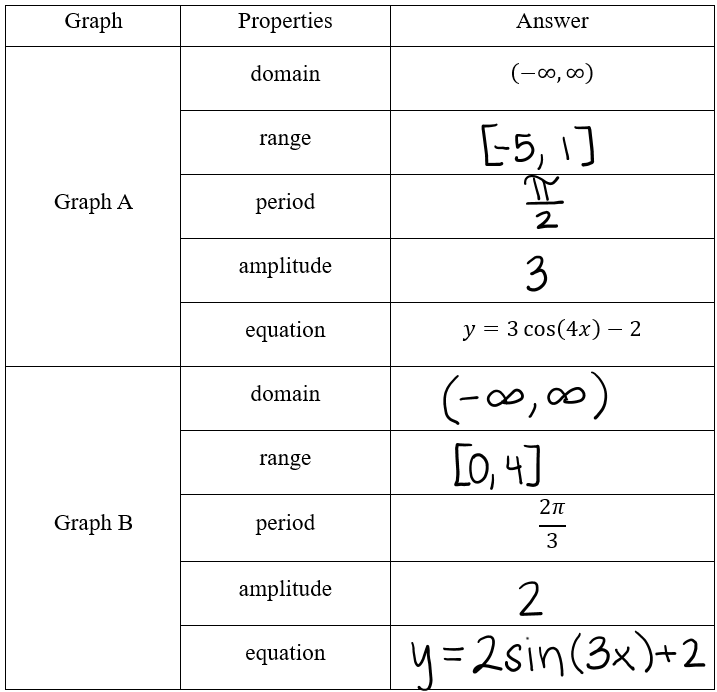 Graph Properties Answer
domain (−∞, ∞)
range [-5, 1]
Graph A period π/2
amplitude 3
equation y = 3 cos(4x) − 2
domain (-∞, ∞)
range [0, 4]
Graph B period 2π/3
amplitude 2
equation y=2sin(3x)+2